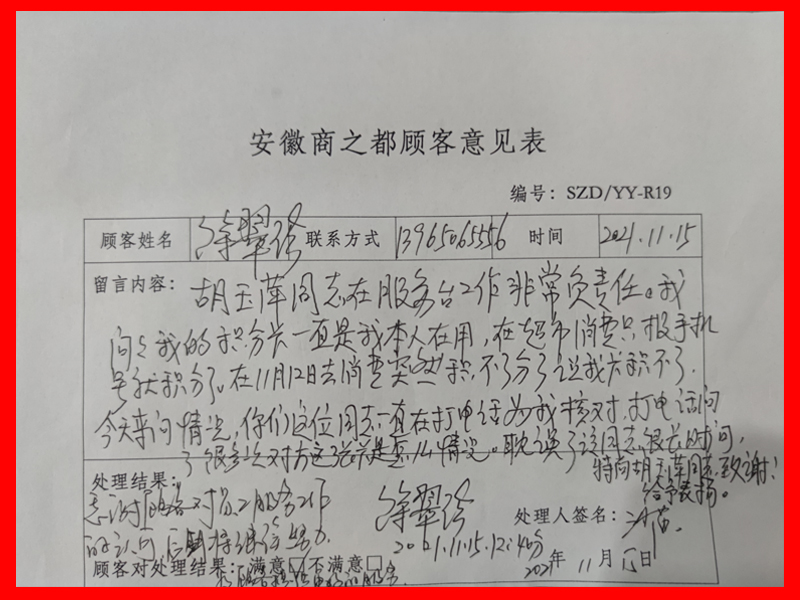 安徽商之都顾客意见表
编号：SZD/YY-R19
顾客姓名 徐翠珍 联系方式 13965065556 时间 2021.11.15
留言内容： 胡玉萍同志在服务台工作非常负责任。我
的积分卡一直是我本人在用，在超市消费只报手机
号就积分了。在11月12日去消费突然积不了分了说我卡积不了.
今天来问情况，你们这位同志一直在打电话为我核对.打电话问
了很多次对方这张卡是怎么情况。耽误了该同志很长时间，
特向胡玉萍同志致谢！
给予表扬。
处理结果：
感谢顾客对员工服务工作
的认可
徐翠珍
2021.11.15.12:40分
处理人签名：
2021年 11月 15日
顾客对处理结果：满意 不满意